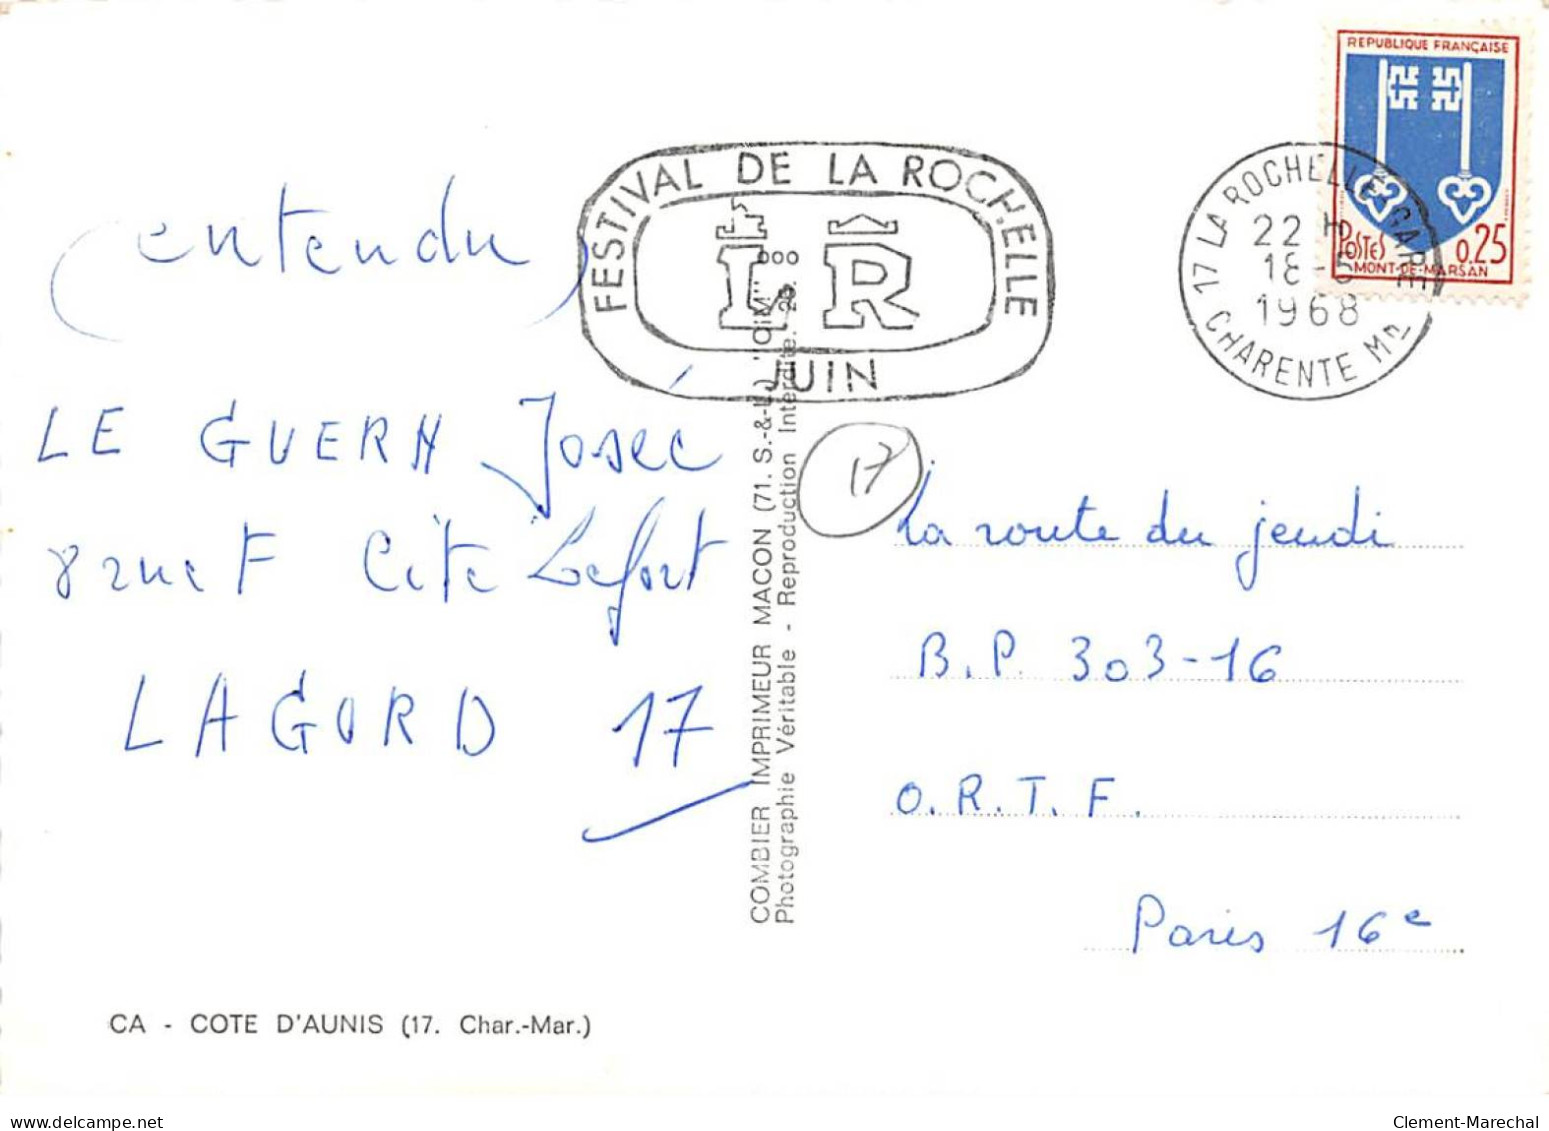 (entendu)
LE GUERN Josée
8 rue F Cité Lefort
LAGORD 17
CA - COTE D'AUNIS (17. Char.-Mar.)
COMBIER IMPRIMEUR MACON (71. S.-&-L.) "CIM"
Photographie Véritable - Reproduction Interdite.
FESTIVAL DE LA ROCHELLE
LR
JUIN
17 LA ROCHELLE-GARE
22 H
18-5
1968
CHARENTE Me
REPUBLIQUE FRANÇAISE
POSTES 0,25
MONT-DE-MARSAN
17
La route du jeudi
B.P. 303-16
O.R.T.F.
Paris 16e
Clement-Marechal